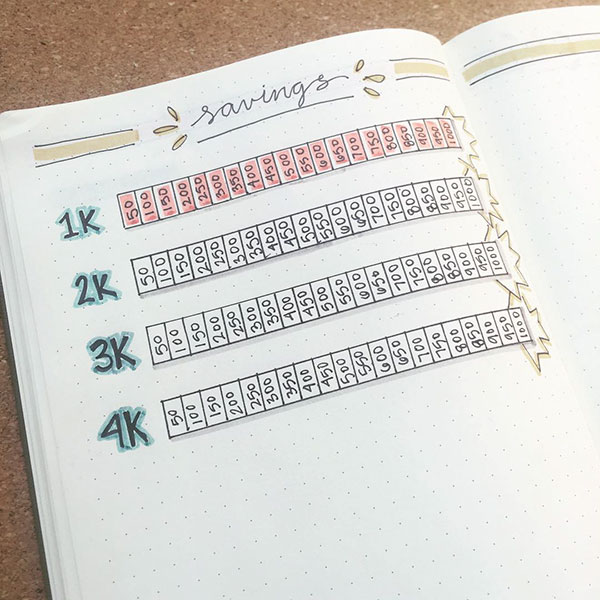 savings
1K 50 100 150 200 250 300 350 400 450 500 550 600 650 700 750 800 850 900 950 1000
2K 50 100 150 200 250 300 350 400 450 500 550 600 650 700 750 800 850 900 950 1000
3K 50 100 150 200 250 300 350 400 450 500 550 600 650 700 750 800 850 900 950 1000
4K 50 100 150 200 250 300 350 400 450 500 550 600 650 700 750 800 850 900 950 1000